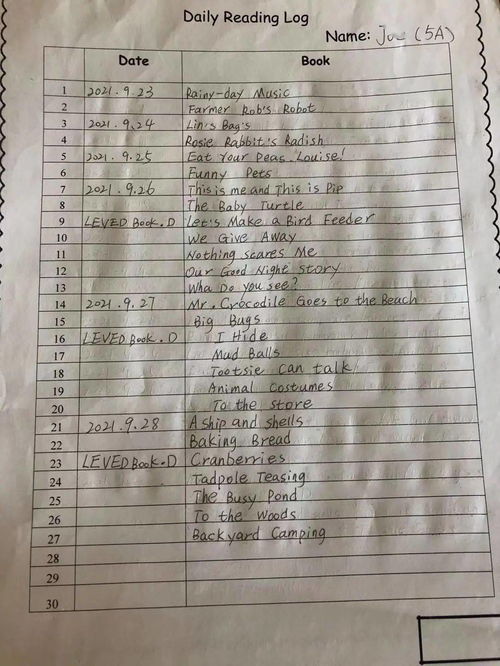 Daily Reading Log
Name: (5A)
Date Book
1 2021.9.23 Rainy-day Music
2 Farmer Rob's Robot
3 2021.9.24 Lin's Bag's
4 Rosie Rabbit's Radish
5 2021.9.25 Eat Your Peas Louise!
6 Funny Pets
7 2021.9.26 This is me and This is Pip
8 The Baby Turtle
9 LEVED Book.D Let's Make a Bird Feeder
10 We Give Away
11 Nothing scares Me
12 Our Good Night story
13 Wha Do you see?
14 2021.9.27 Mr. Crocodile Goes to the Beach
15 Big Bugs
16 LEVED Book.D I Hide
17 Mud Balls
18 Tootsie can talk
19 Animal Costumes
20 To the store
21 2021.9.28 A ship and shells
22 Baking Bread
23 LEVED Book.D Cranberries
24 Tadpole Teasing
25 The Busy Pond
26 To the Woods
27 Backyard Camping
28
29
30